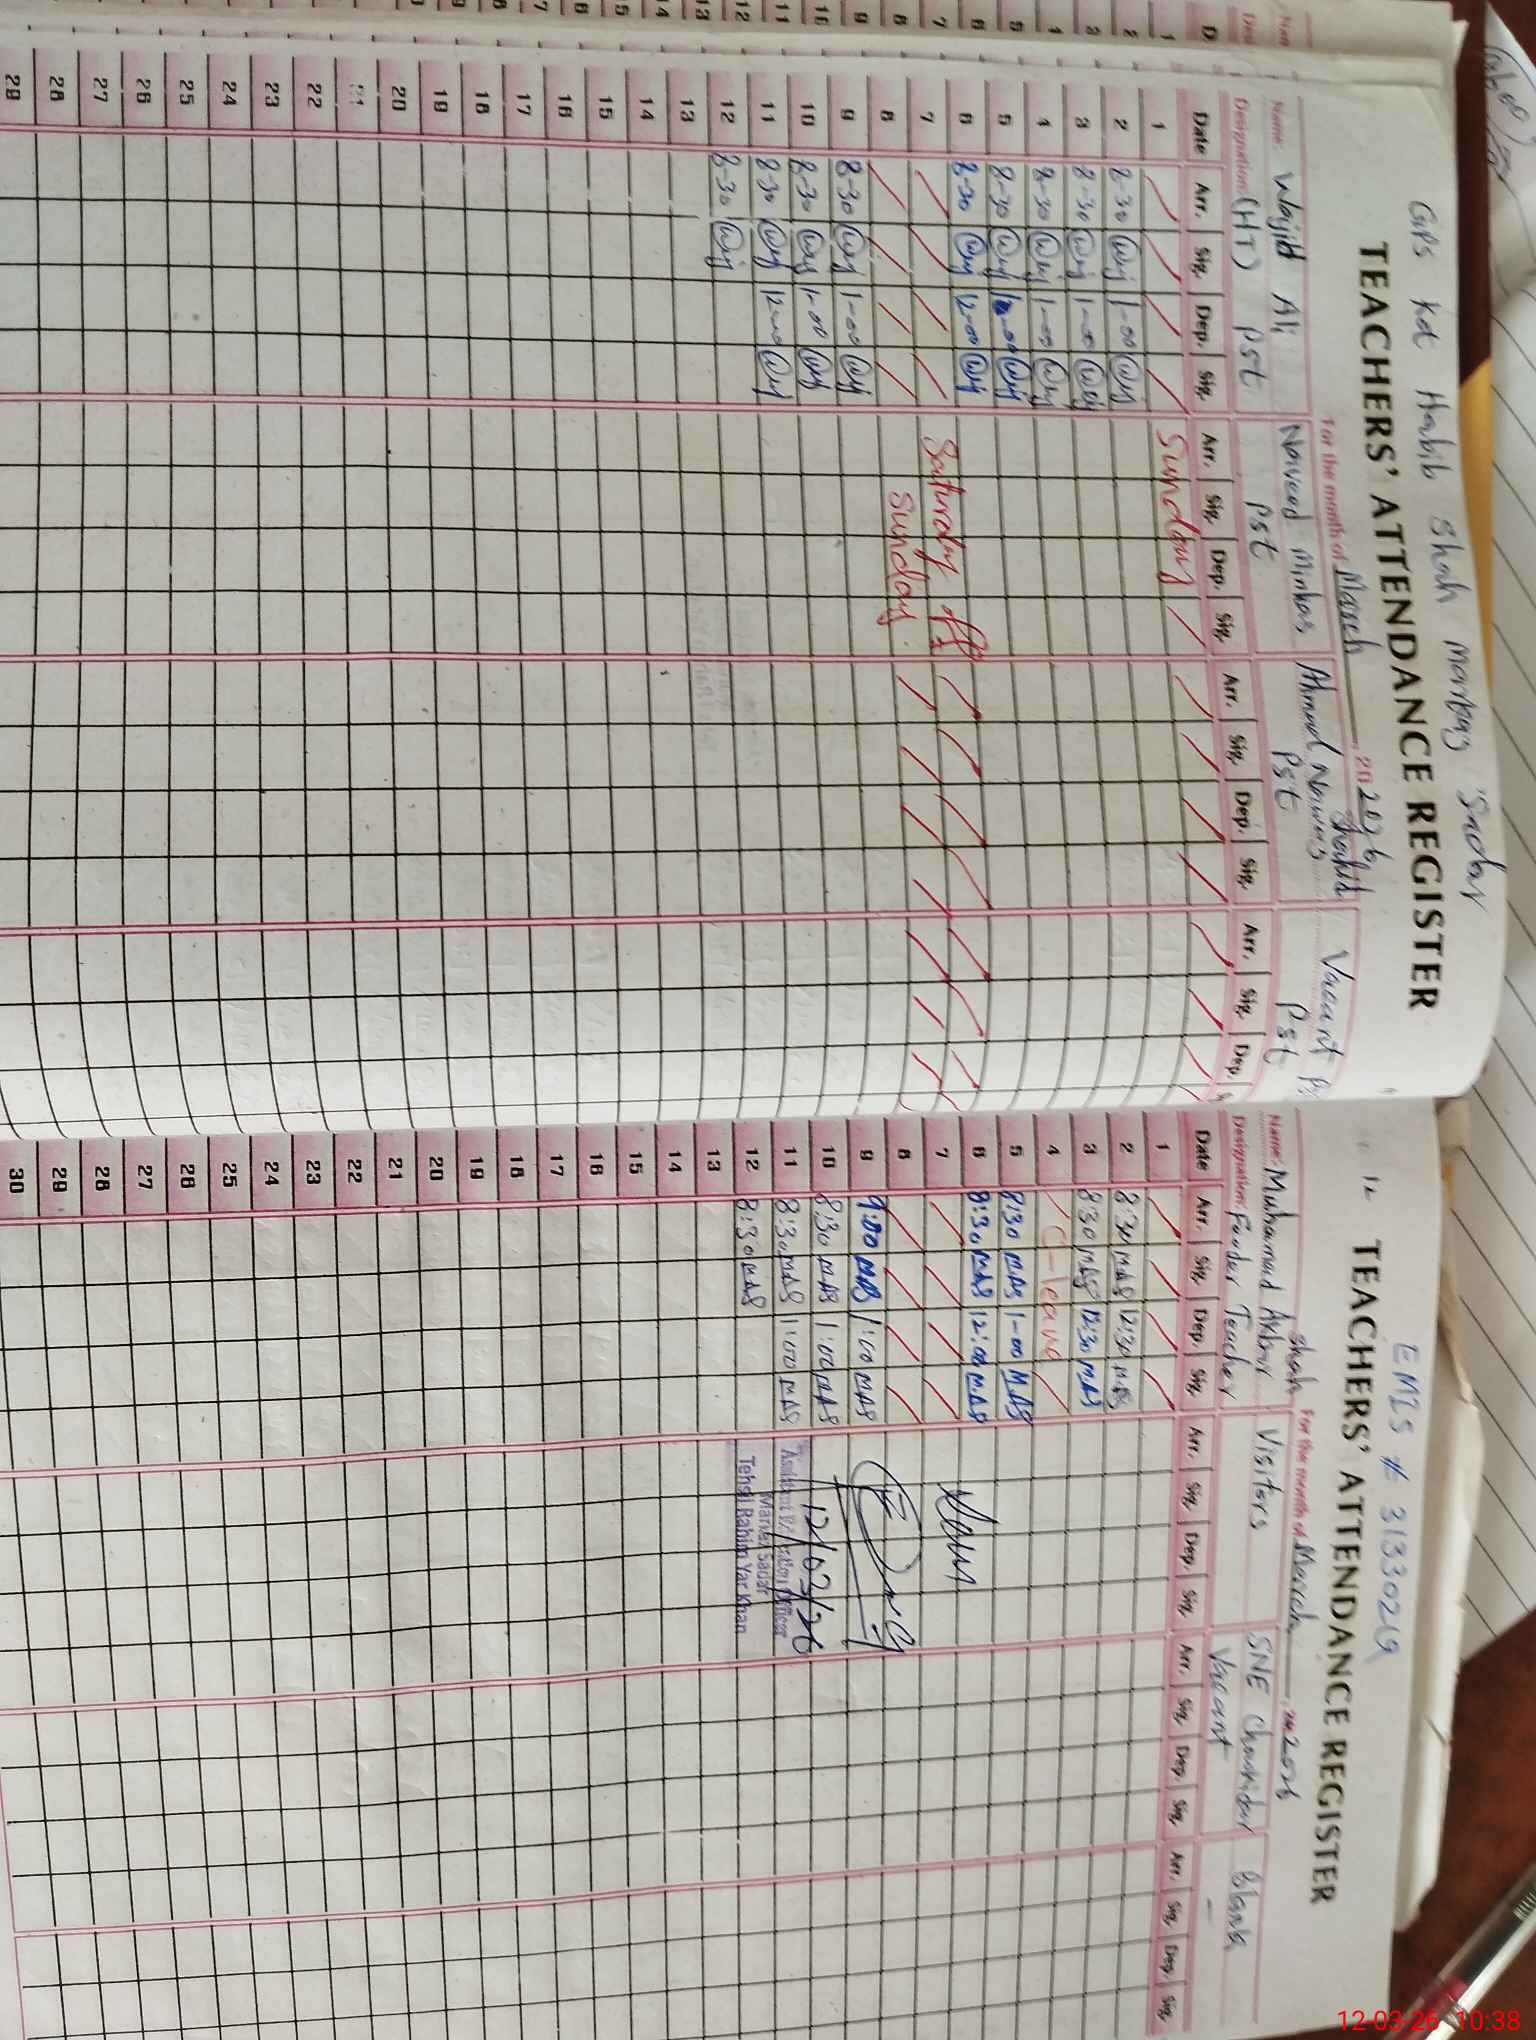 GPS Kot Habib Shah markaz Sadar
TEACHERS' ATTENDANCE REGISTER
For the month of March 2026
Name: Wajid Ali
Designation: (HT) PST
Naveed Minhas
PST
Ahmad Nawaz Shahid
PST
Vacant
PST
Date Arr. Sig. Dep. Sig. Arr. Sig. Dep. Sig. Arr. Sig. Dep. Sig. Arr. Sig. Dep.
1 Sunday
2 8-30 1-00
3 8-30 1-00
4 8-30 1-00
5 8-30
6 8-30 12-00
7 Saturday off
8 Sunday
9 8-30 1-00
10 8-30 1-00
11 8-30 12-00
12 8-30
13
14
15
16
17
18
19
20
21
22
23
24
25
26
27
28
29
EMIS # 31330219
TEACHERS' ATTENDANCE REGISTER
For the month of March 2026
Name: Muhammad Akbar Shah
Designation: Feeder Teacher
Visitors
SNE Chowkidar
Vacant
Blank
Date Arr. Sig. Dep. Sig. Arr. Sig. Dep. Sig. Arr. Sig. Dep. Sig. Arr. Sig. Dep. Sig.
1
2 8:30 MAS 12:30 MAS
3 8:30 MAS 12:30 MAS
4 C-leave
5 8:30 MAS 1-00 MAS
6 8:30 MAS 12:00 MAS
7
8
9 9:00 MAS 1:00 MAS
10 8:30 MAS 1:00 MAS
11 8:30 MAS 1:00 MAS
12 8:30 MAS
13
14
15
16
17
18
19
20
21
22
23
24
25
26
27
28
29
30
12/03/26
Assistant Education Officer
Markaz Sadar
Tehsil Rahim Yar Khan
12-03-26 10:38